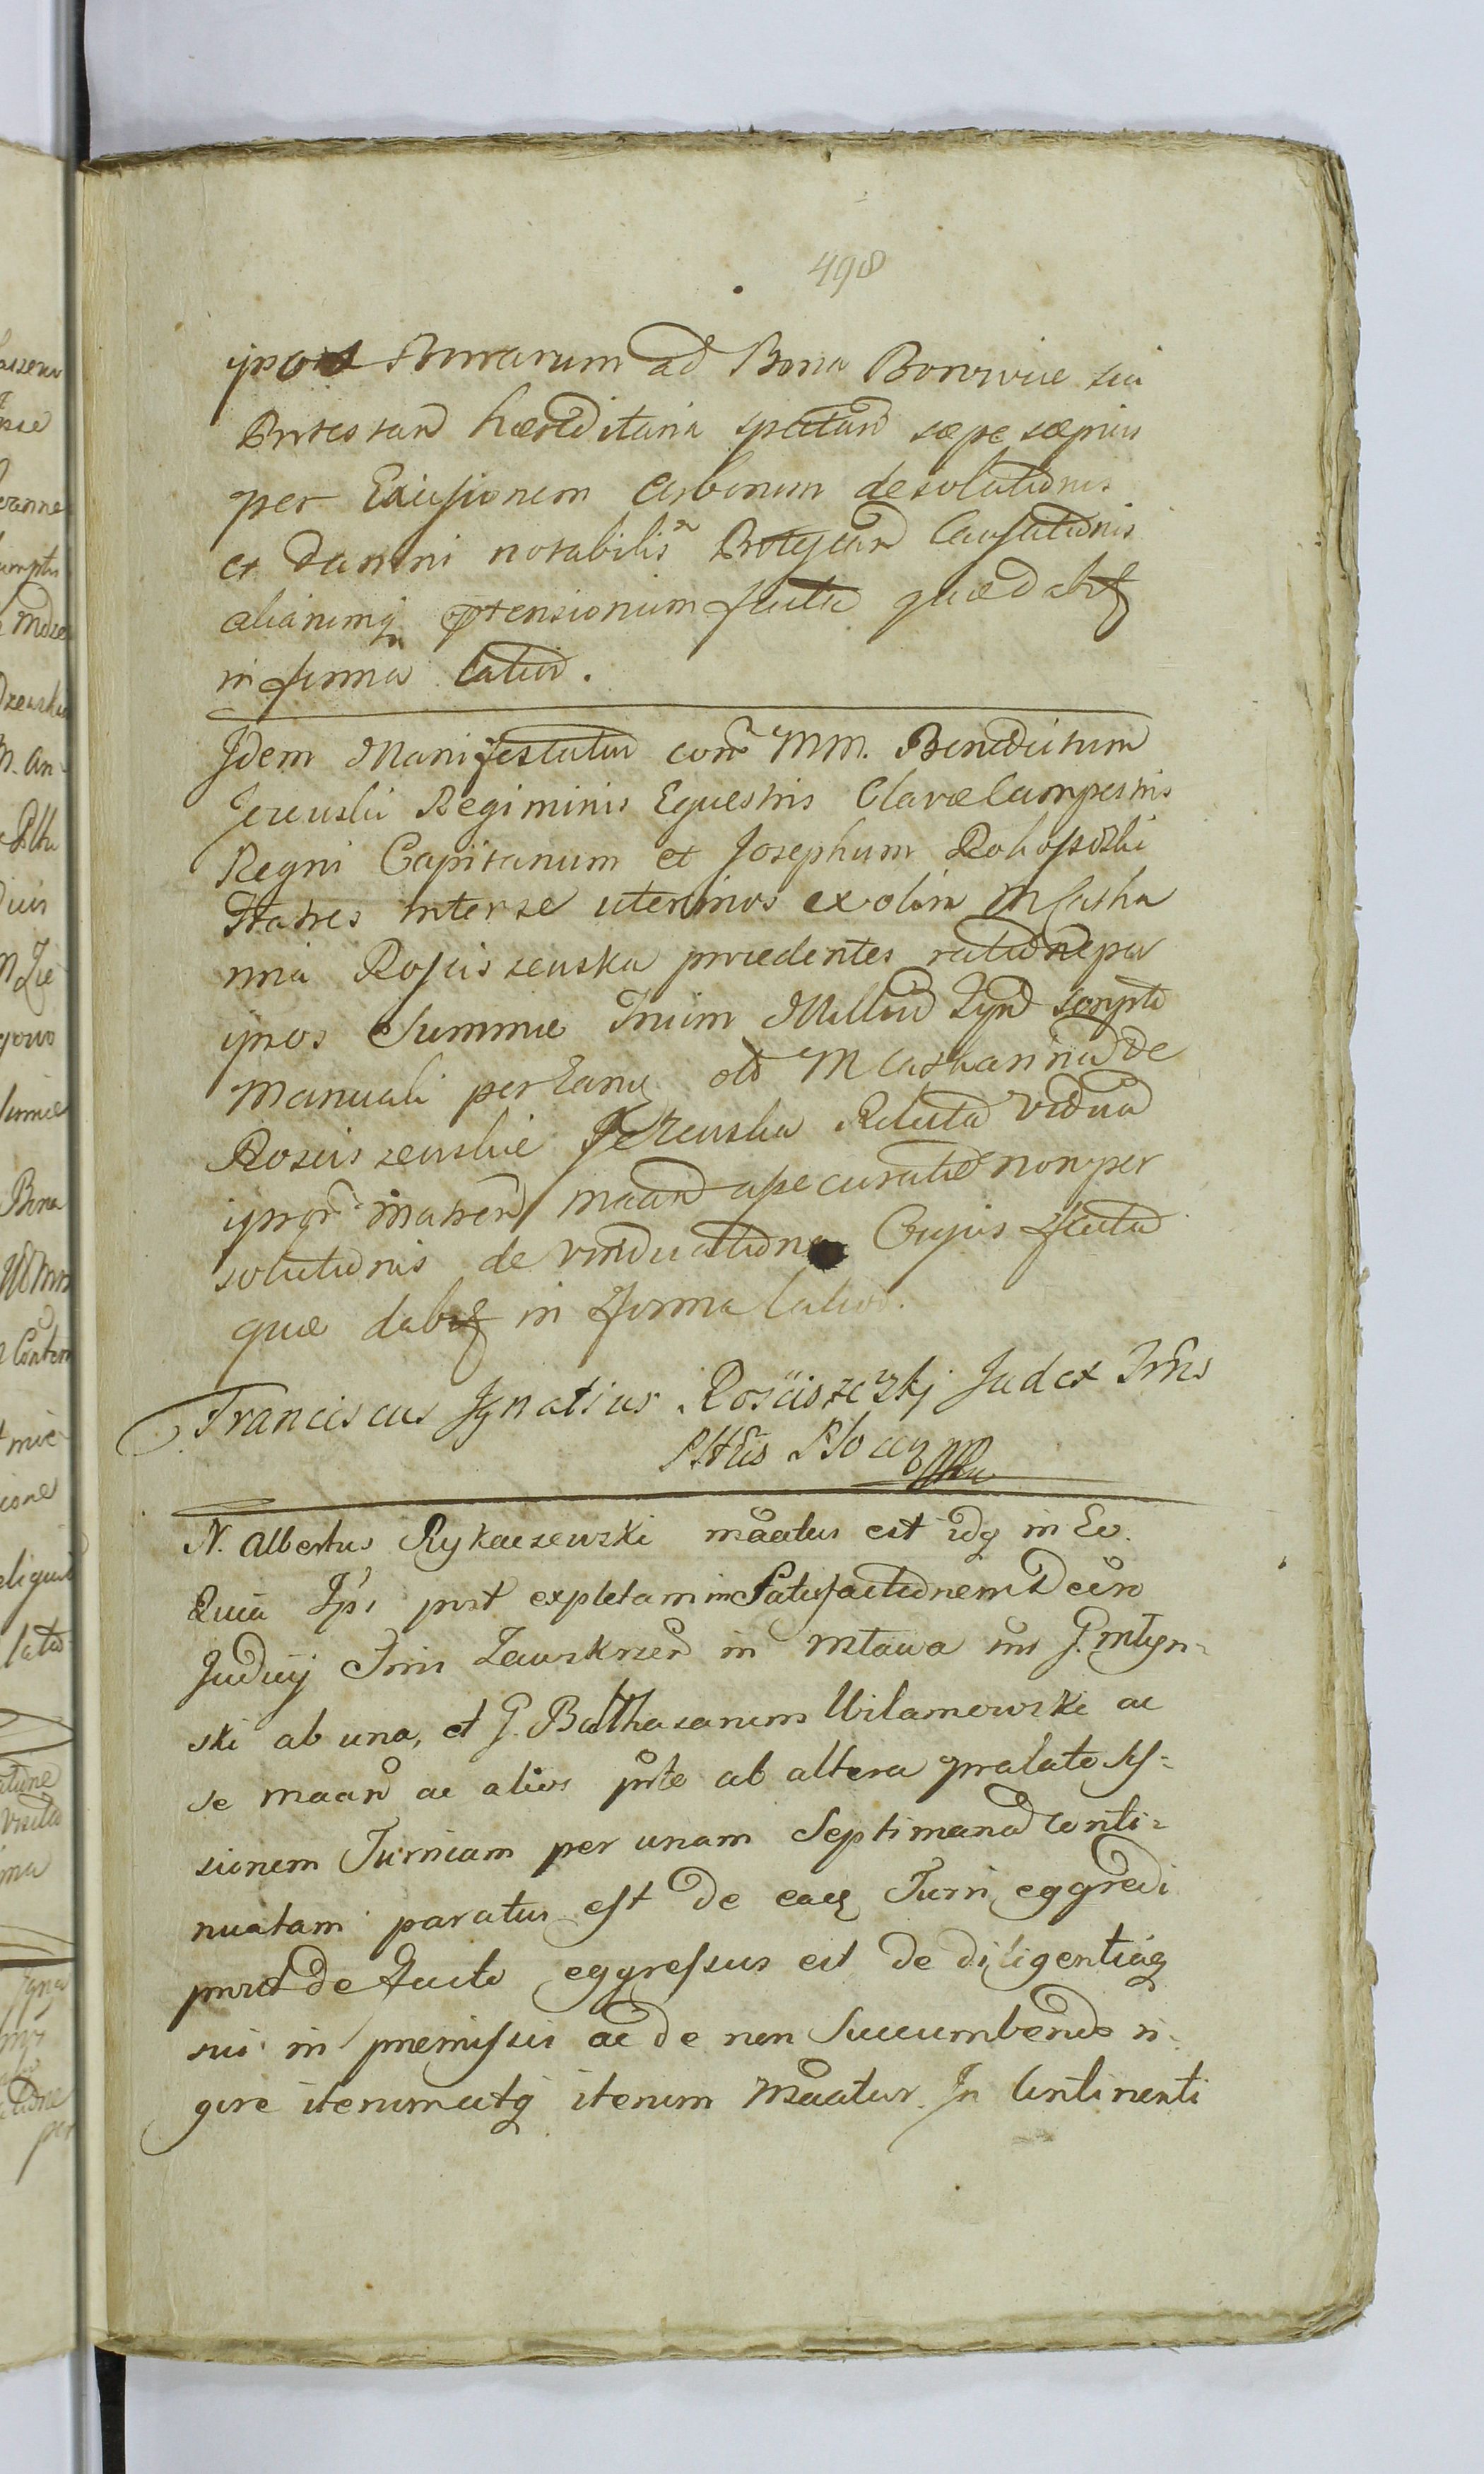 498
Borrarum ad Bona Borowie sia
hæreditaria spectan sæpe sæpius
per Excisionem Arborum desolationis
et damni notabilis Causationis
aliarumq ptensionum facta quæ dabit
in forma latiu.
Idem Manifestatur con MM. Benedictum
Jezewski Regiminis Equestris Clavæ Campestris
Regni Capitanum et Josephum
Fratres inter se uterinos ex olim M Catha
rina Rosciszewska procedentes ratione per
ipsos Summæ Trium Millium scripto
Manuali per Eanq old M Catharina de
Rosciszewskie Jezewska Relicta Vidua
ipsor matren maan assecuratæ non per
solutionis de vindicatione Cujus facta
quæ dabit in forma latiu.
Franciscus Ignatius Rościszewskj Judex Trris
Plocen mp
N. Albertus Rykaczewski maatus est idq in Eo.
Quia Ipse post expletam in Satisfactionem Decre
Judicij Trris Zawskrzen in Mława int G. Mlyn-
ski ab una, et G. Balthasarum Wilamowski ac
se maan ac alios parte ab altera prolato ses-
sionem Turriam per unam Septimana conti-
nuatam paratus est de eaq Turri eggredi
prout de facto eggressus est de diligentiaq
sui in præmissis ac de non Succumbendo ri-
gore iterum atq iterum Maatur. In Continenti